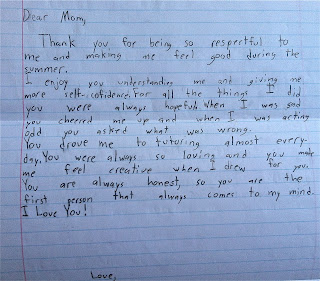 Dear Mom,
Thank you for being so respectful to
me and making me feel good during the
summer.
I enjoy you understanding me and giving me
more self-confidence. For all the things I did
you were always hopeful. When I was sad
you cheered me up and when I was acting
odd you asked what was wrong.
You drove me to tutoring almost every-
day. You were always so loving and you make
me feel creative when I drew for you.
You are always honest, so you are the
first person that always comes to my mind.
I Love You!
Love,